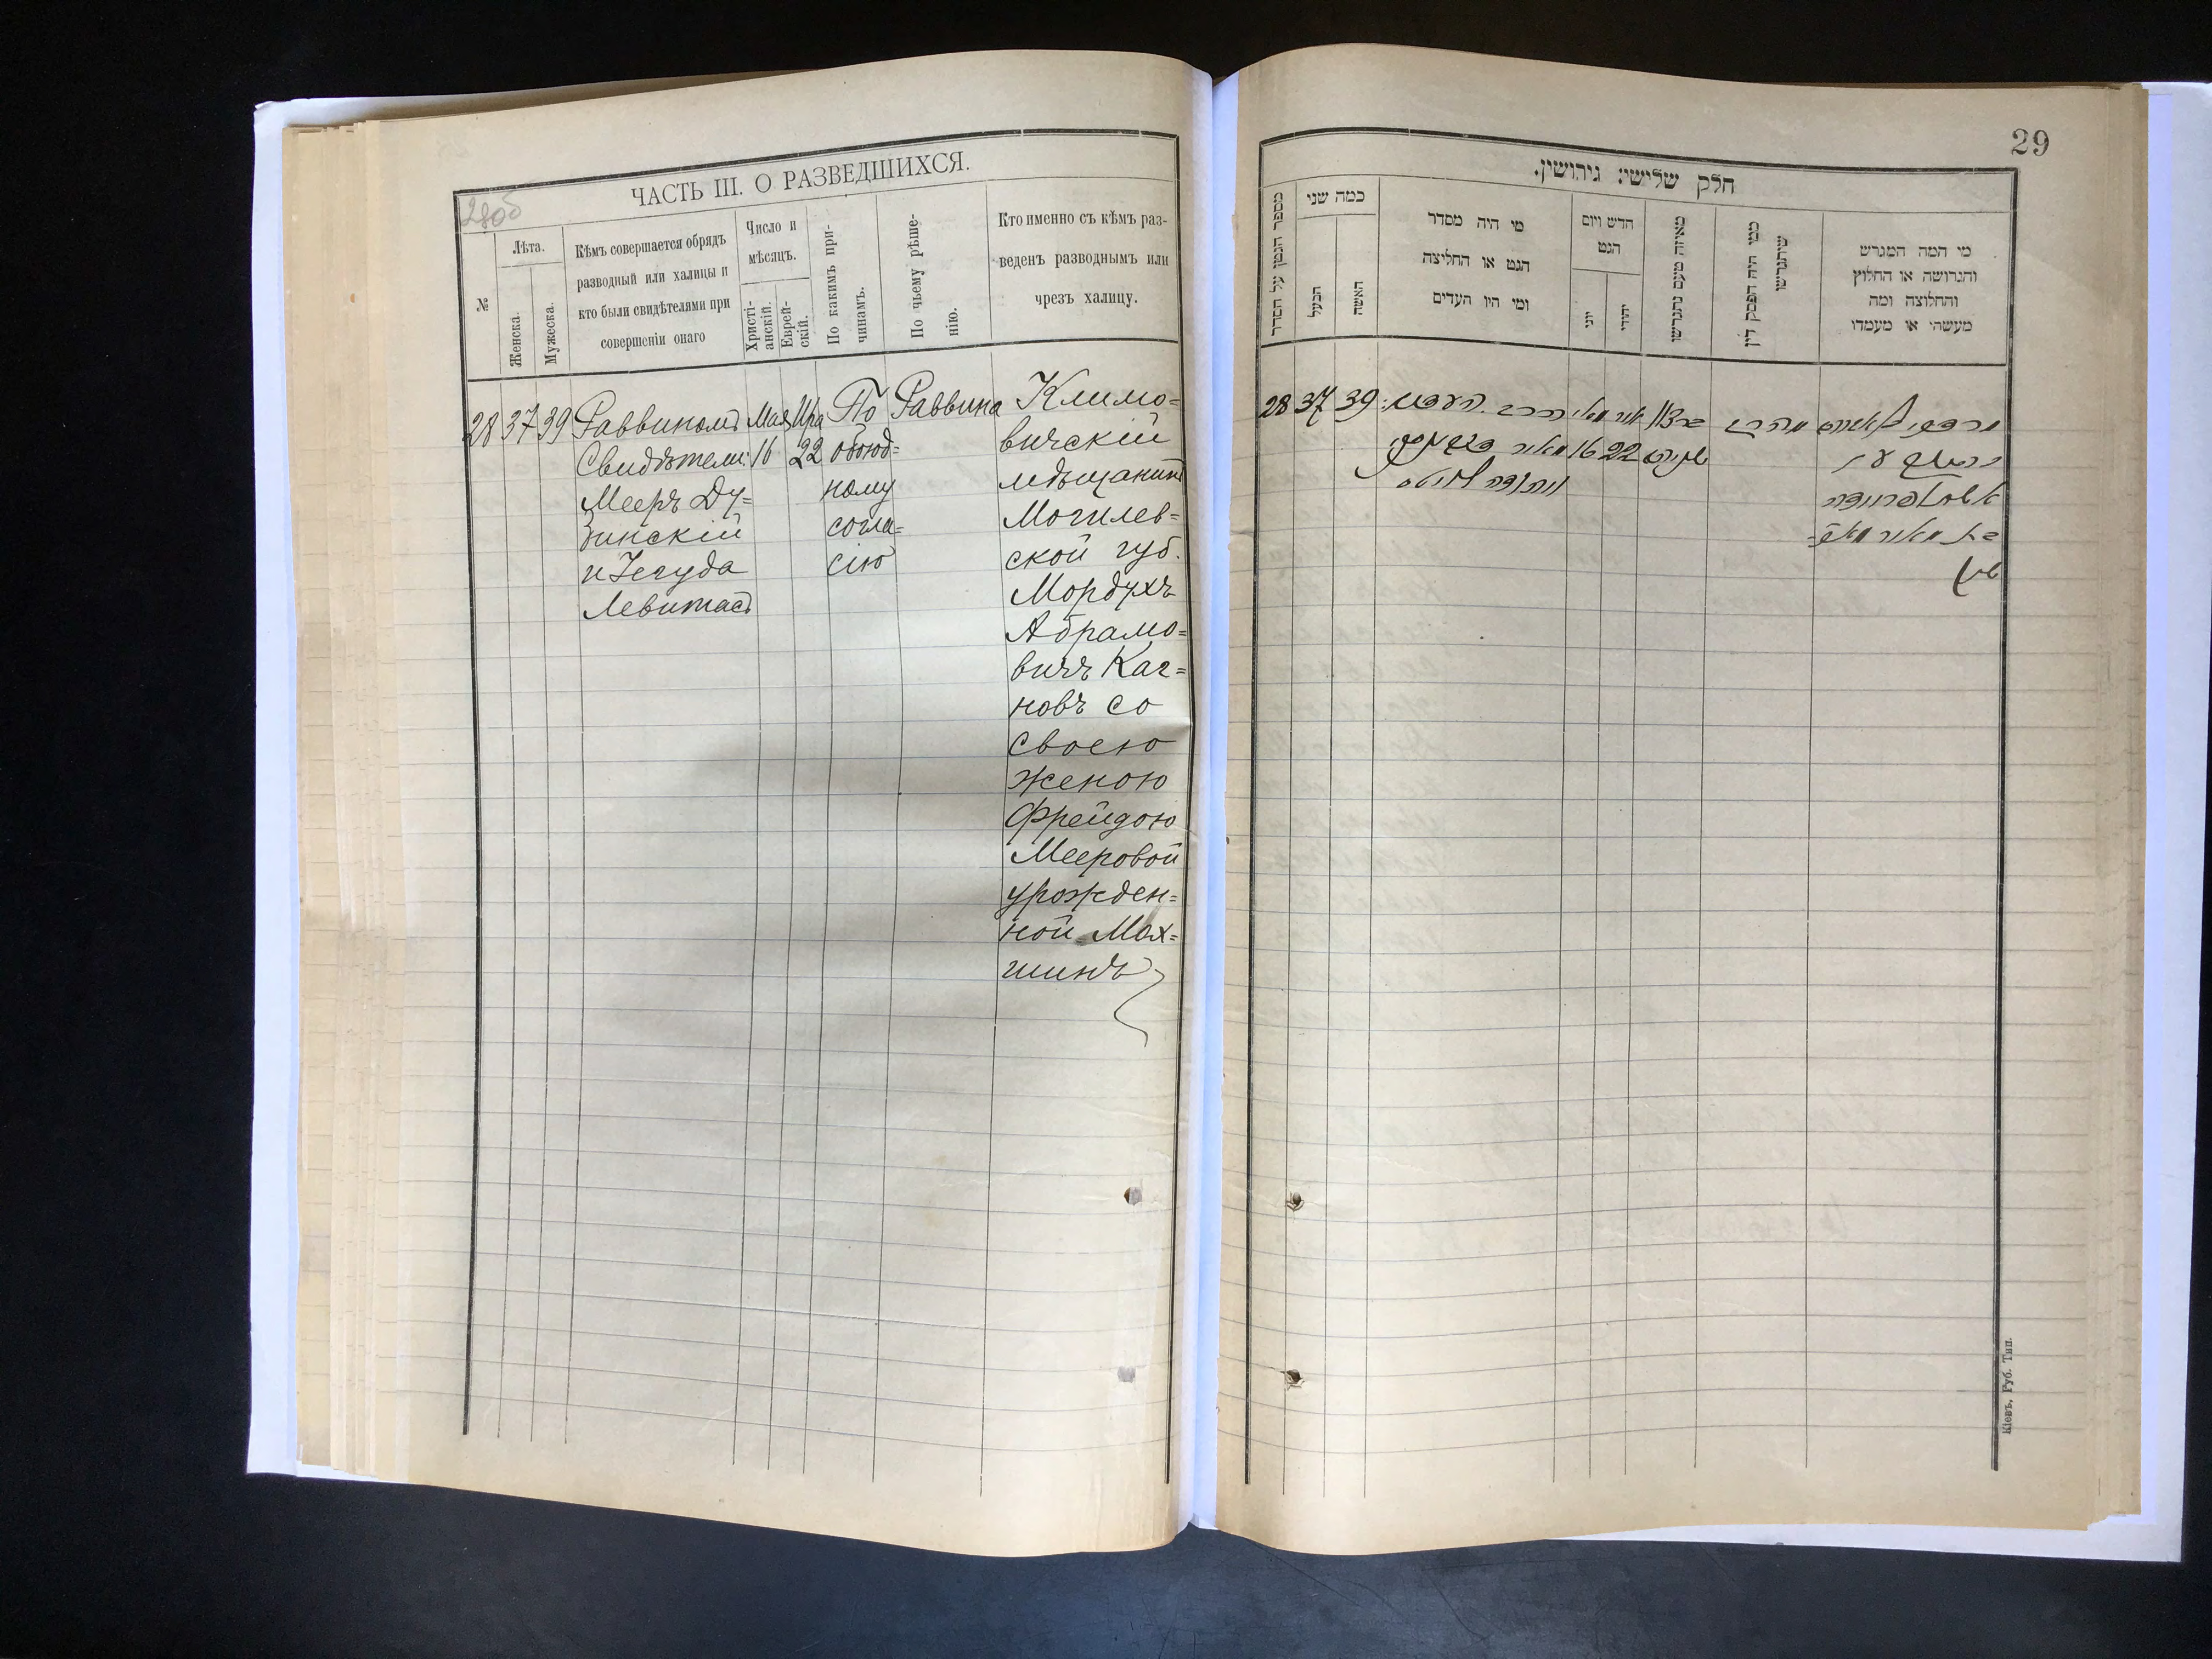 28об
ЧАСТЬ III. О РАЗВЕДШИХСЯ.
№
Лѣта.
Женска.
Мужеска.
Кѣмъ совершается обрядъ
разводный или халицы и
кто были свидѣтелями при
совершеніи онаго
Число и
мѣсяцъ.
Христі-
анскій.
Еврей-
скій.
По какимъ при-
чинамъ.
По чьему рѣше-
нію.
Кто именно съ кѣмъ раз-
веденъ разводнымъ или
чрезъ халицу.
28 37 39
Раввиномъ
Свидѣтели:
Мееръ Ду-
бинскій
и Іегуда
Левитасъ
Мая
16
Ира
22
По
обоюд=
ному
согла=
сію
Раввина
Климо=
вичскій
мѣщанинъ
Могилев=
ской губ.
Мордухъ
Абрамо=
вичъ Каг=
новъ со
своею
женою
Фрейдою
Мееровой
урожден=
ной Мах=
шинъ
29
חלק שלישי: גירושין.
מספר הגטין על הסדר
כמה שני
הבעל
האשה
מי היה מסדר
הגט או החליצה
ומי היו העדים
חדש ויום
הגט
יוני
יהודי
מאיזה טעם נתגרשו
ממי היה הפסק דין
שיתגרשו
מי המה המגרש
והגרושה או החלוץ
והחלוצה ומה
מעשהי או מעמדו
28 37 39
הרב. העדים:
מאיר
ויהודה
מאי
16
איר
22
הרב
מרדכי
עם
אשתו פריידה
בת מאיר
Кіевъ, Губ. Тип.